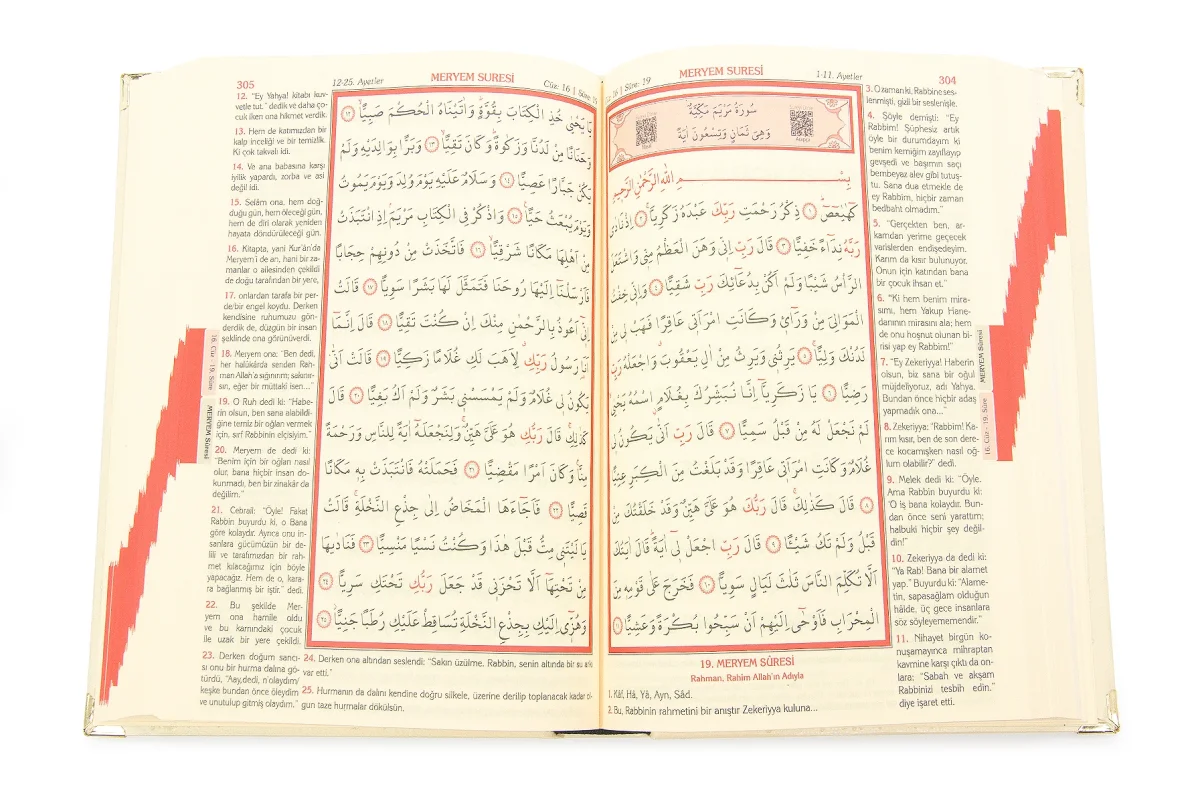 304
MERYEM SURESİ
1-11. Ayetler
16 | Sûre: 19
سُورَةُ مَرْيَمَ مَكِّيَّةٌ
وَهِيَ ثَمَانٍ وَتِسْعُونَ اٰيَةً
بِسْمِ اللّٰهِ الرَّحْمٰنِ الرَّحِيمِ
كٓهٰيٰعٓصٓ ﴿١﴾ ذِكْرُ رَحْمَتِ رَبِّكَ عَبْدَهُ زَكَرِيَّا ﴿٢﴾ اِذْ نَادٰى
رَبَّهُ نِدَٓاءً خَفِيًّا ﴿٣﴾ قَالَ رَبِّ اِنّ۪ي وَهَنَ الْعَظْمُ مِنّ۪ي وَاشْتَعَلَ
الرَّأْسُ شَيْبًا وَلَمْ اَكُنْ بِدُعَٓائِكَ رَبِّ شَقِيًّا ﴿٤﴾ وَاِنّ۪ي خِفْتُ
الْمَوَالِيَ مِنْ وَرَٓائ۪ي وَكَانَتِ امْرَاَت۪ي عَاقِرًا فَهَبْ ل۪ي مِنْ
لَدُنْكَ وَلِيًّا ﴿٥﴾ يَرِثُن۪ي وَيَرِثُ مِنْ اٰلِ يَعْقُوبَ وَاجْعَلْهُ رَبِّ
رَضِيًّا ﴿٦﴾ يَا زَكَرِيَّٓا اِنَّا نُبَشِّرُكَ بِغُلَامٍ اسْمُهُ يَحْيٰى
لَمْ نَجْعَلْ لَهُ مِنْ قَبْلُ سَمِيًّا ﴿٧﴾ قَالَ رَبِّ اَنّٰى يَكُونُ ل۪ي
غُلَامٌ وَكَانَتِ امْرَاَت۪ي عَاقِرًا وَقَدْ بَلَغْتُ مِنَ الْكِبَرِ عِتِيًّا
﴿٨﴾ قَالَ كَذٰلِكَ قَالَ رَبُّكَ هُوَ عَلَيَّ هَيِّنٌ وَقَدْ خَلَقْتُكَ مِنْ
قَبْلُ وَلَمْ تَكُ شَيْـًٔا ﴿٩﴾ قَالَ رَبِّ اجْعَلْ ل۪ٓي اٰيَةً قَالَ اٰيَتُكَ
اَلَّا تُكَلِّمَ النَّاسَ ثَلٰثَ لَيَالٍ سَوِيًّا ﴿١٠﴾ فَخَرَجَ عَلٰى قَوْمِه۪ مِنَ
الْمِحْرَابِ فَاَوْحٰٓى اِلَيْهِمْ اَنْ سَبِّحُوا بُكْرَةً وَعَشِيًّا ﴿١١﴾
19. MERYEM SÛRESİ
Rahman, Rahim Allah'ın Adıyla
1. Kâf, Hâ, Yâ, Ayn, Sâd.
2. Bu, Rabbinin rahmetini bir anıştır Zekeriyya kuluna...
3. O zaman ki, Rabbine ses-
lenmişti, gizli bir seslenişle.
4. Şöyle demişti: "Ey
Rabbim! Şüphesiz artık
öyle bir durumdayım ki
benim kemiğim zayıflayıp
gevşedi ve başımın saçı
bembeyaz alev gibi tutuş-
tu. Sana dua etmekle de
ey Rabbim, hiçbir zaman
bedbaht olmadım."
5. "Gerçekten ben, ar-
kamdan yerime geçecek
varislerden endişedeyim.
Karım da kısır bulunuyor.
Onun için katından bana
bir çocuk ihsan et."
6. "Ki hem benim mira-
sımı, hem Yakup Hane-
danının mirasını ala; hem
de onu hoşnut olunan bi-
risi yap ey Rabbim!"
7. "Ey Zekeriyya! Haberin
olsun, biz sana bir oğul
müjdeliyoruz, adı Yahya.
Bundan önce hiçbir adaş
yapmadık ona..."
8. Zekeriyya: "Rabbim! Ka-
rım kısır, ben de son dere-
ce kocamışken nasıl oğ-
lum olabilir?" dedi.
9. Melek dedi ki: "Öyle.
Ama Rabbin buyurdu ki:
'O iş bana kolaydır. Bun-
dan önce seni yarattım;
halbuki hiçbir şey değil-
din!"
10. Zekeriyya da dedi ki:
"Ya Rab! Bana bir alamet
yap." Buyurdu ki: "Alame-
tin, sapasağlam olduğun
hâlde, üç gece insanlara
söz söyleyememendir."
11. Nihayet birgün ko-
nuşamayınca mihraptan
kavmine karşı çıktı da on-
lara; "Sabah ve akşam
Rabbinizi tesbih edin."
diye işaret etti.
MERYEM Sûresi
16. Cüz - 19. Sûre
305
12-25. Ayetler
MERYEM SURESİ
Cüz: 16 | Sûre: 19
يَا يَحْيٰى خُذِ الْكِتَابَ بِقُوَّةٍ وَاٰتَيْنَاهُ الْحُكْمَ صَبِيًّا ﴿١٢﴾
وَحَنَانًا مِنْ لَدُنَّا وَزَكٰوةً وَكَانَ تَقِيًّا ﴿١٣﴾ وَبَرًّا بِوَالِدَيْهِ وَلَمْ
يَكُنْ جَبَّارًا عَصِيًّا ﴿١٤﴾ وَسَلَامٌ عَلَيْهِ يَوْمَ وُلِدَ وَيَوْمَ يَمُوتُ
وَيَوْمَ يُبْعَثُ حَيًّا ﴿١٥﴾ وَاذْكُرْ فِي الْكِتَابِ مَرْيَمَ اِذِ انْتَبَذَتْ
مِنْ اَهْلِهَا مَكَانًا شَرْقِيًّا ﴿١٦﴾ فَاتَّخَذَتْ مِنْ دُونِهِمْ حِجَابًا
فَاَرْسَلْنَٓا اِلَيْهَا رُوحَنَا فَتَمَثَّلَ لَهَا بَشَرًا سَوِيًّا ﴿١٧﴾ قَالَتْ
اِنّ۪ٓي اَعُوذُ بِالرَّحْمٰنِ مِنْكَ اِنْ كُنْتَ تَقِيًّا ﴿١٨﴾ قَالَ اِنَّمَٓا
اَنَا رَسُولُ رَبِّكِ لِاَهَبَ لَكِ غُلَامًا زَكِيًّا ﴿١٩﴾ قَالَتْ اَنّٰى
يَكُونُ ل۪ي غُلَامٌ وَلَمْ يَمْسَسْن۪ي بَشَرٌ وَلَمْ اَكُ بَغِيًّا ﴿٢٠﴾ قَالَ
كَذٰلِكِ قَالَ رَبُّكِ هُوَ عَلَيَّ هَيِّنٌ وَلِنَجْعَلَهُٓ اٰيَةً لِلنَّاسِ وَرَحْمَةً
مِنَّا وَكَانَ اَمْرًا مَقْضِيًّا ﴿٢١﴾ فَحَمَلَتْهُ فَانْتَبَذَتْ بِه۪ مَكَانًا
قَصِيًّا ﴿٢٢﴾ فَاَجَٓاءَهَا الْمَخَاضُ اِلٰى جِذْعِ النَّخْلَةِ قَالَتْ
يَا لَيْتَن۪ي مِتُّ قَبْلَ هٰذَا وَكُنْتُ نَسْيًا مَنْسِيًّا ﴿٢٣﴾ فَنَادٰيهَا
مِنْ تَحْتِهَٓا اَلَّا تَحْزَن۪ي قَدْ جَعَلَ رَبُّكِ تَحْتَكِ سَرِيًّا ﴿٢٤﴾
وَهُزّ۪ٓي اِلَيْكِ بِجِذْعِ النَّخْلَةِ تُسَاقِطْ عَلَيْكِ رُطَبًا جَنِيًّا ﴿٢٥﴾
12. "Ey Yahya! kitabı kuv-
vetle tut." dedik ve daha ço-
cuk iken ona hikmet verdik.
13. Hem de katımızdan bir
kalp inceliği ve bir temizlik.
Ki çok takvalı idi.
14. Ve ana babasına karşı
iyilik yapardı, zorba ve asi
değil idi.
15. Selâm ona, hem doğ-
duğu gün, hem öleceği gün,
hem de diri olarak yeniden
hayata döndürüleceği gün.
16. Kitapta, yani Kur'ân'da
Meryem'i de an, hani bir za-
manlar o ailesinden çekildi
de doğu tarafından bir yere,
17. onlardan tarafa bir per-
de/bir engel koydu. Derken
kendisine ruhumuzu gön-
derdik de, düzgün bir insan
şeklinde ona görünüverdi.
18. Meryem ona: "Ben dedi,
her halükârda senden Rah-
man Allah'a sığınırım; sakınır-
sın, eğer bir müttaki isen..."
19. O Ruh dedi ki: "Habe-
rin olsun, ben sana alabildi-
ğine temiz bir oğlan vermek
için, sırf Rabbinin elçisiyim."
20. Meryem de dedi ki:
"Benim için bir oğlan nasıl
olur, bana hiçbir insan do-
kunmadı, ben bir zinakâr da
değilim."
21. Cebrail: "Öyle! Fakat
Rabbin buyurdu ki, o Bana
göre kolaydır. Ayrıca onu in-
sanlara gücümüzün bir de-
lili ve tarafımızdan bir rah-
met kılacağımız için böyle
yapacağız. Hem de o, kara-
ra bağlanmış bir iştir." dedi.
22. Bu şekilde Mer-
yem ona hamile oldu
ve bu karnındaki çocuk
ile uzak bir yere çekildi.
23. Derken doğum sancı-
sı onu bir hurma dalına gö-
türdü, "Aay, dedi, n'olaydım/
keşke bundan önce öleydim
ve unutulup gitmiş olaydım."
24. Derken ona altından seslendi: "Sakın üzülme. Rabbin, senin altında bir su arkı
var etti."
25. Hurmanın da dalını kendine doğru silkele, üzerine derilip toplanacak kadar ol-
gun taze hurmalar dökülsün.
16. Cüz - 19. Sûre
MERYEM Sûresi